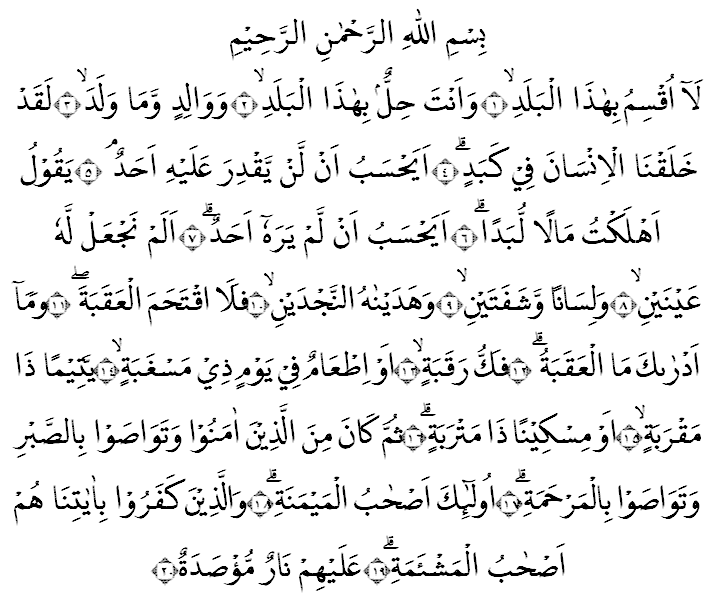 بِسْمِ اللّٰهِ الرَّحْمٰنِ الرَّحِيْمِ
لَآ اُقْسِمُ بِهٰذَا الْبَلَدِۙ ١ وَاَنْتَ حِلٌّۢ بِهٰذَا الْبَلَدِۙ ٢ وَوَالِدٍ وَّمَا وَلَدَۙ ٣ لَقَدْ
خَلَقْنَا الْاِنْسَانَ فِيْ كَبَدٍۗ ٤ اَيَحْسَبُ اَنْ لَّنْ يَّقْدِرَ عَلَيْهِ اَحَدٌ ۘ ٥ يَقُوْلُ
اَهْلَكْتُ مَالًا لُّبَدًاۗ ٦ اَيَحْسَبُ اَنْ لَّمْ يَرَهٗٓ اَحَدٌۗ ٧ اَلَمْ نَجْعَلْ لَّهٗ
عَيْنَيْنِۙ ٨ وَلِسَانًا وَّشَفَتَيْنِۙ ٩ وَهَدَيْنٰهُ النَّجْدَيْنِۙ ١٠ فَلَا اقْتَحَمَ الْعَقَبَةَ ۖ ١١ وَمَآ
اَدْرٰىكَ مَا الْعَقَبَةُ ۗ ١٢ فَكُّ رَقَبَةٍۙ ١٣ اَوْ اِطْعَامٌ فِيْ يَوْمٍ ذِيْ مَسْغَبَةٍۙ ١٤ يَّتِيْمًا ذَا
مَقْرَبَةٍۙ ١٥ اَوْ مِسْكِيْنًا ذَا مَتْرَبَةٍۗ ١٦ ثُمَّ كَانَ مِنَ الَّذِيْنَ اٰمَنُوْا وَتَوَاصَوْا بِالصَّبْرِ
وَتَوَاصَوْا بِالْمَرْحَمَةِۗ ١٧ اُولٰۤىِٕكَ اَصْحٰبُ الْمَيْمَنَةِۗ ١٨ وَالَّذِيْنَ كَفَرُوْا بِاٰيٰتِنَا هُمْ
اَصْحٰبُ الْمَشْـَٔمَةِۗ ١٩ عَلَيْهِمْ نَارٌ مُّؤْصَدَةٌ ٢٠